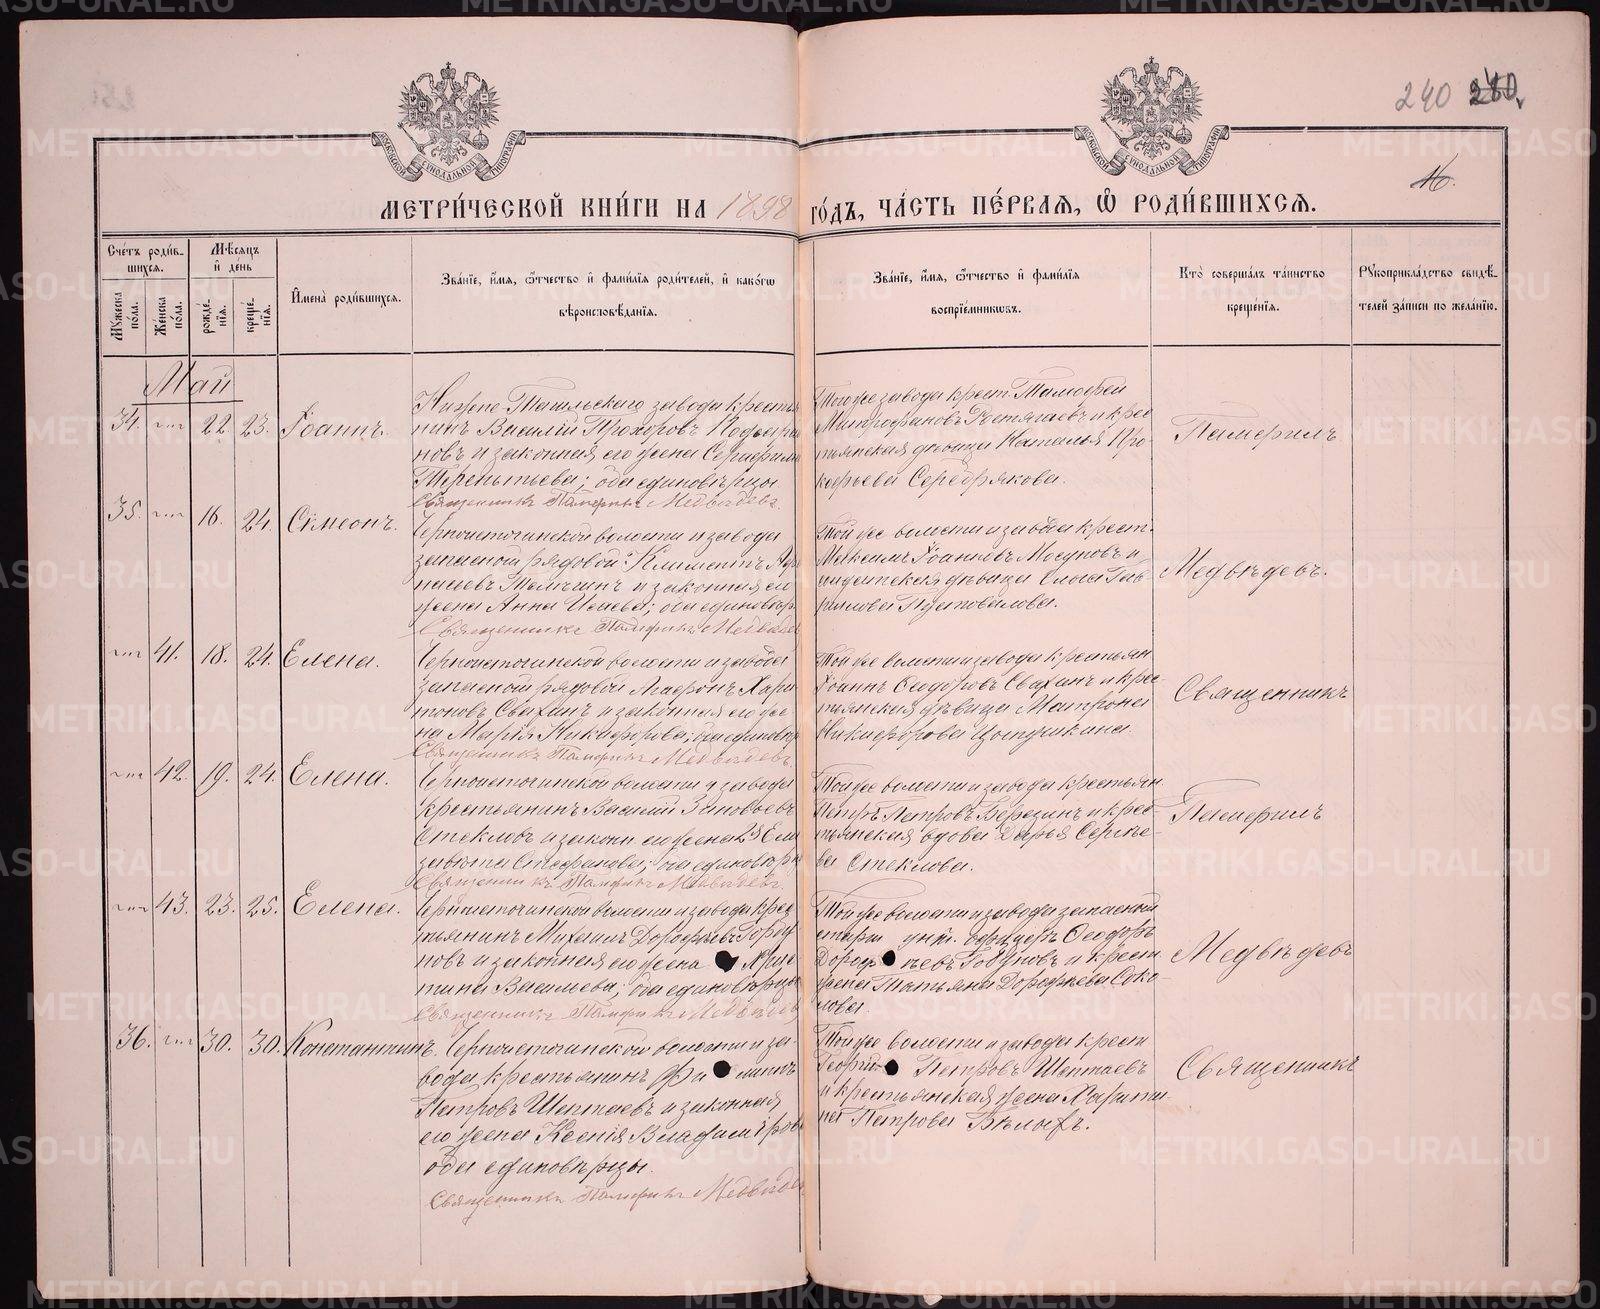 240 280.
16.
МЕТРИ́ЧЕСКОЙ КНИ́ГИ НА 1898 ГО́ДЪ, ЧА́СТЬ ПЕ́РВАЯ, Ѡ҆ РОДИ́ВШИХСЯ.
Сче́тъ роди́в-
шихся.
Мѣ́сяцъ
и҆ день
Мꙋ́жеска по́ла.
Же́нска по́ла.
рожде́-
нїя.
креще́-
нїя.
И҆мена̀ роди́вшихся.
Зва́нїе, и҆́мя, ѻ҆́тчество и҆ фами́лїя роди́телей, и҆ како́гѡ
вѣроисповѣ́данїя.
Зва́нїе, и҆́мя, ѻ҆́тчество и҆ фами́лїя
воспрїе́мникѡвъ.
Кто̀ соверша́лъ та́инство
креще́нїя.
Рꙋкоприкла́дство свидѣ́-
телей за́писи по жела́нїю.
Май
34. 22. 23. Іоаннъ.
Нижне-Тагильскаго завода крестья
нинъ Василій Прохоровъ
новъ и законная его жена Серафима
Терентьева; оба единовѣрцы
Священникъ Памфилъ Медвѣдевъ.
Тогоже завода крест. Тимофей
Митрофановъ и крес
тьянская дѣвица Наталья Про-
кофьева Серебрякова.
Памфилъ
35. 16. 24. Сімеонъ.
Черноисточинской волости и завода
запасной рядовой Климентъ
и законная его
жена Анна Исаева; оба единовѣр
Священникъ Памфилъ Медвѣдев
Той же волости и завода крест.
Максимъ Іоанновъ Мосуновъ и
дѣвица Елена Гав
рилова Пустовалова.
Медвѣдевъ.
41. 18. 24. Елена.
Черноисточинской волости и завода
запасной рядовой Агафонъ Хари
тоновъ Свахинъ и законная его же
на Марія Никифорова; оба единовѣр
Священникъ Памфилъ Медвѣдевъ.
Той же волости и завода крестьян.
Іоаннъ Ѳеодоровъ Свахинъ и крес-
тьянская дѣвица Матрона
Никифорова
Священникъ
42. 19. 24. Елена.
Черноисточинской волости и завода
крестьянинъ Василій Зиновьевъ
Стекловъ и законн. его жена Ели
завета Стефанова; оба единовѣр
Священникъ Памфилъ Медвѣдевъ.
Той же волости и завода крестьян.
Петръ Петровъ Березинъ и крес-
тьянская вдова Дарья Сергѣе-
ва Стеклова.
Памфилъ
43. 23. 25. Елена.
Черноисточинской волости и завода крес
тьянинъ Михаилъ Дорофѣевъ
новъ и законная его жена Хрис
тина Васильева; оба единовѣрцы
Священникъ Памфилъ Медвѣдев
Той же волости и завода запасной
старш. унт. офицеръ Ѳеодоръ
Дороф ѣевъ и крест.
жена Татьяна Дорофѣева Соко-
лова.
Медвѣдевъ
36. 30. 30. Константинъ.
Черноисточинской волости и за-
вода, крестьянинъ Фи липпъ
Петровъ Шептаевъ и законная
его жена Ксенія Владимірова
оба единовѣрцы.
Священникъ Памфилъ Медвѣдев
Той же волости и завода крест.
Георгі Петровъ Шептаевъ
и крестьянская жена Харити-
на Петрова Бѣлыхъ.
Священникъ